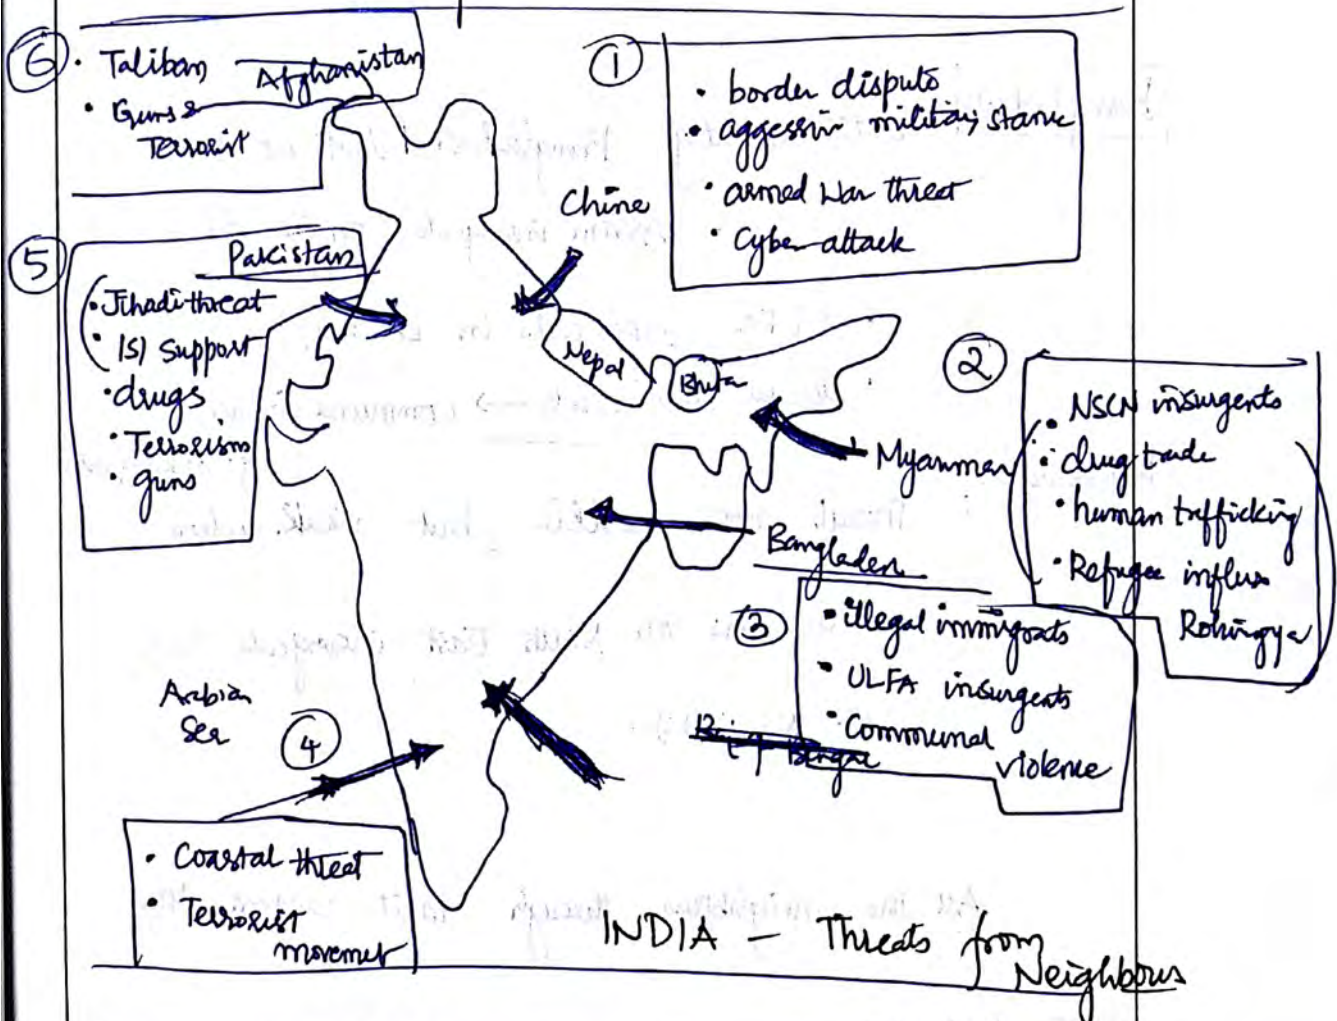 6
• Taliban
Afghanistan
• Guns &
Terrorist
1
• border disputs
• aggessiv military stance
• armed war threat
• Cyber attack
China
5
Pakistan
• Jihadi threat
• ISI support
• drugs
• Terrorisms
• guns
Nepal
Bhuta
2
• NSCN insurgents
• drug trade
• human trafficking
• Refugee influx
Rohingya
Myanmar
Bangladesh
3
• illegal immigrants
• ULFA insurgents
• Communal
violence
Arabian
Sea
4
• Coastal threat
• Terrorist
movemet
INDIA – Threats from
Neighbours